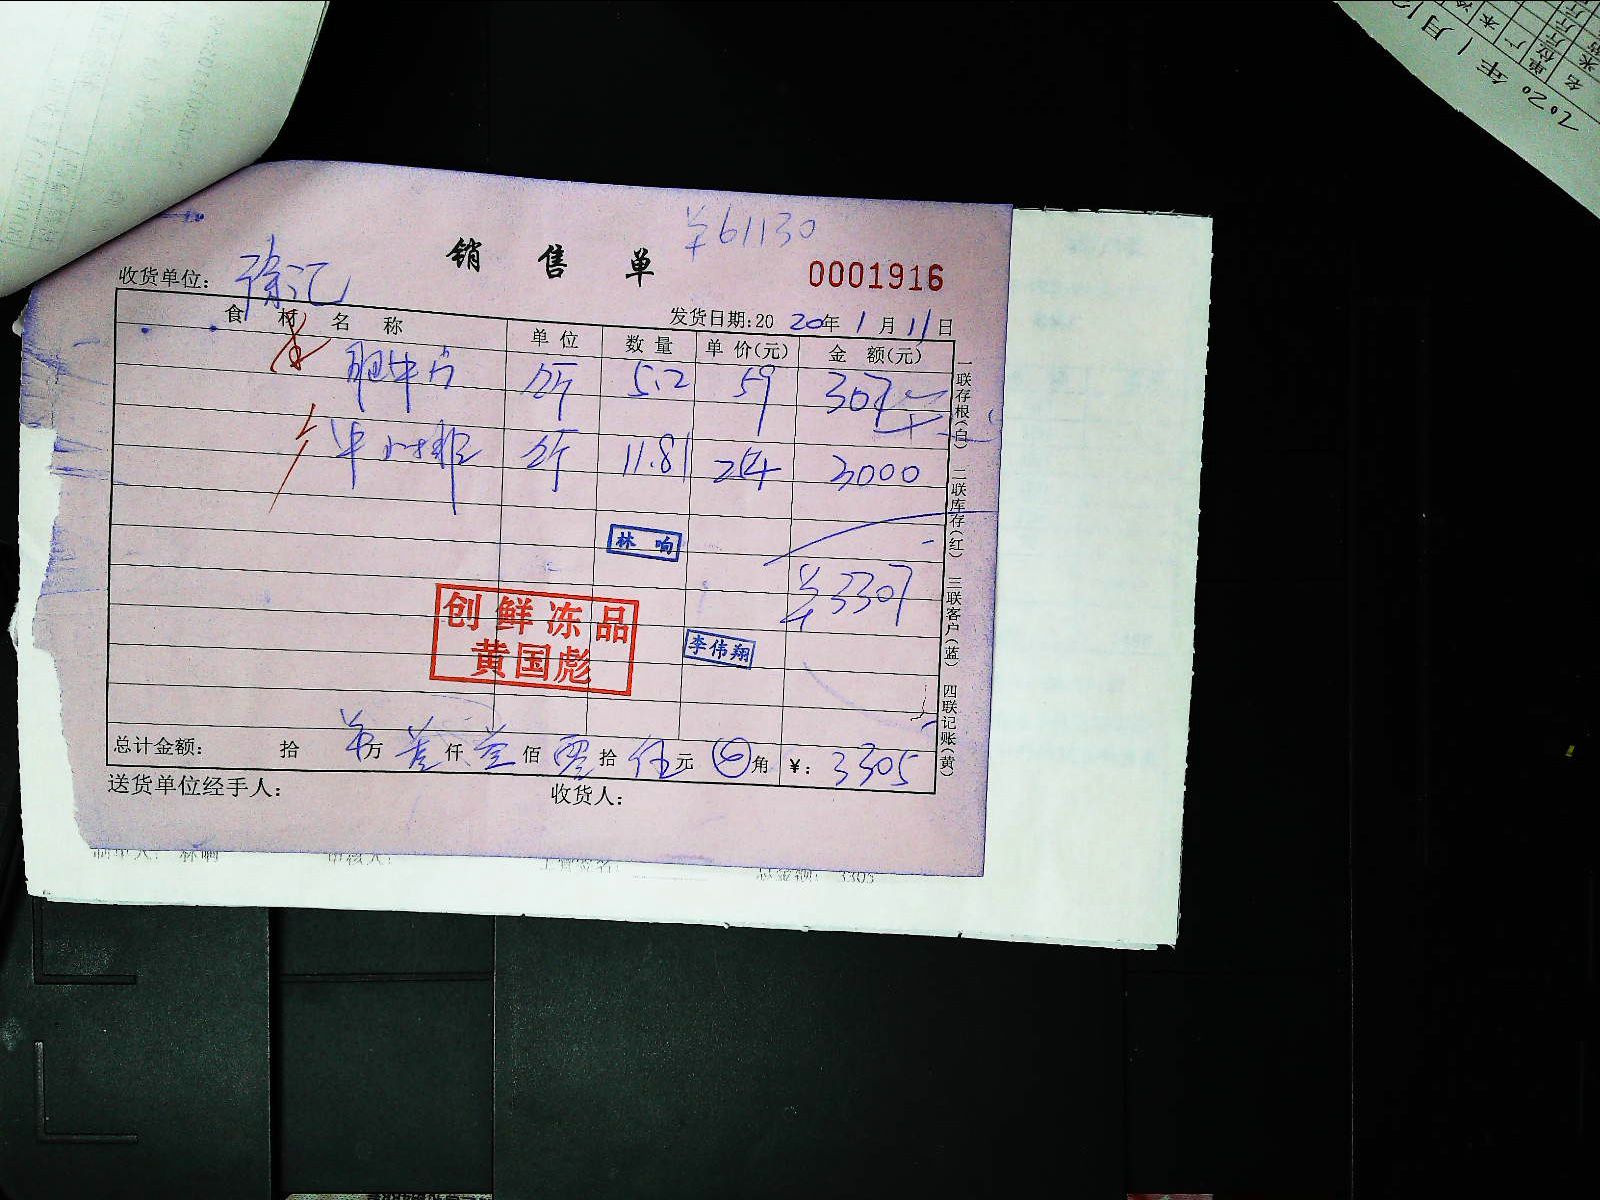 ￥61130
销 售 单
0001916
收货单位： 徐汇
发货日期:20 20年 1 月 11日
食 材 名 称 单 位 数 量 单 价(元) 金 额(元)
肥牛片 公斤 5.12 59 307
牛 排 公斤 11.81 254 3000
林 响
￥3307
创鲜冻品
黄国彪
李伟翔
总计金额： 拾 万 叁 仟 叁 佰 零 拾 伍 元 角 ￥: 3305
送货单位经手人： 收货人：
一联存根(白) 二联库存(红) 三联客户(蓝) 四联记账(黄)
制单人： 林响 审核人： 主管签名： 总金额： 3305
2020 年 1 月
名
单位
斤
斤